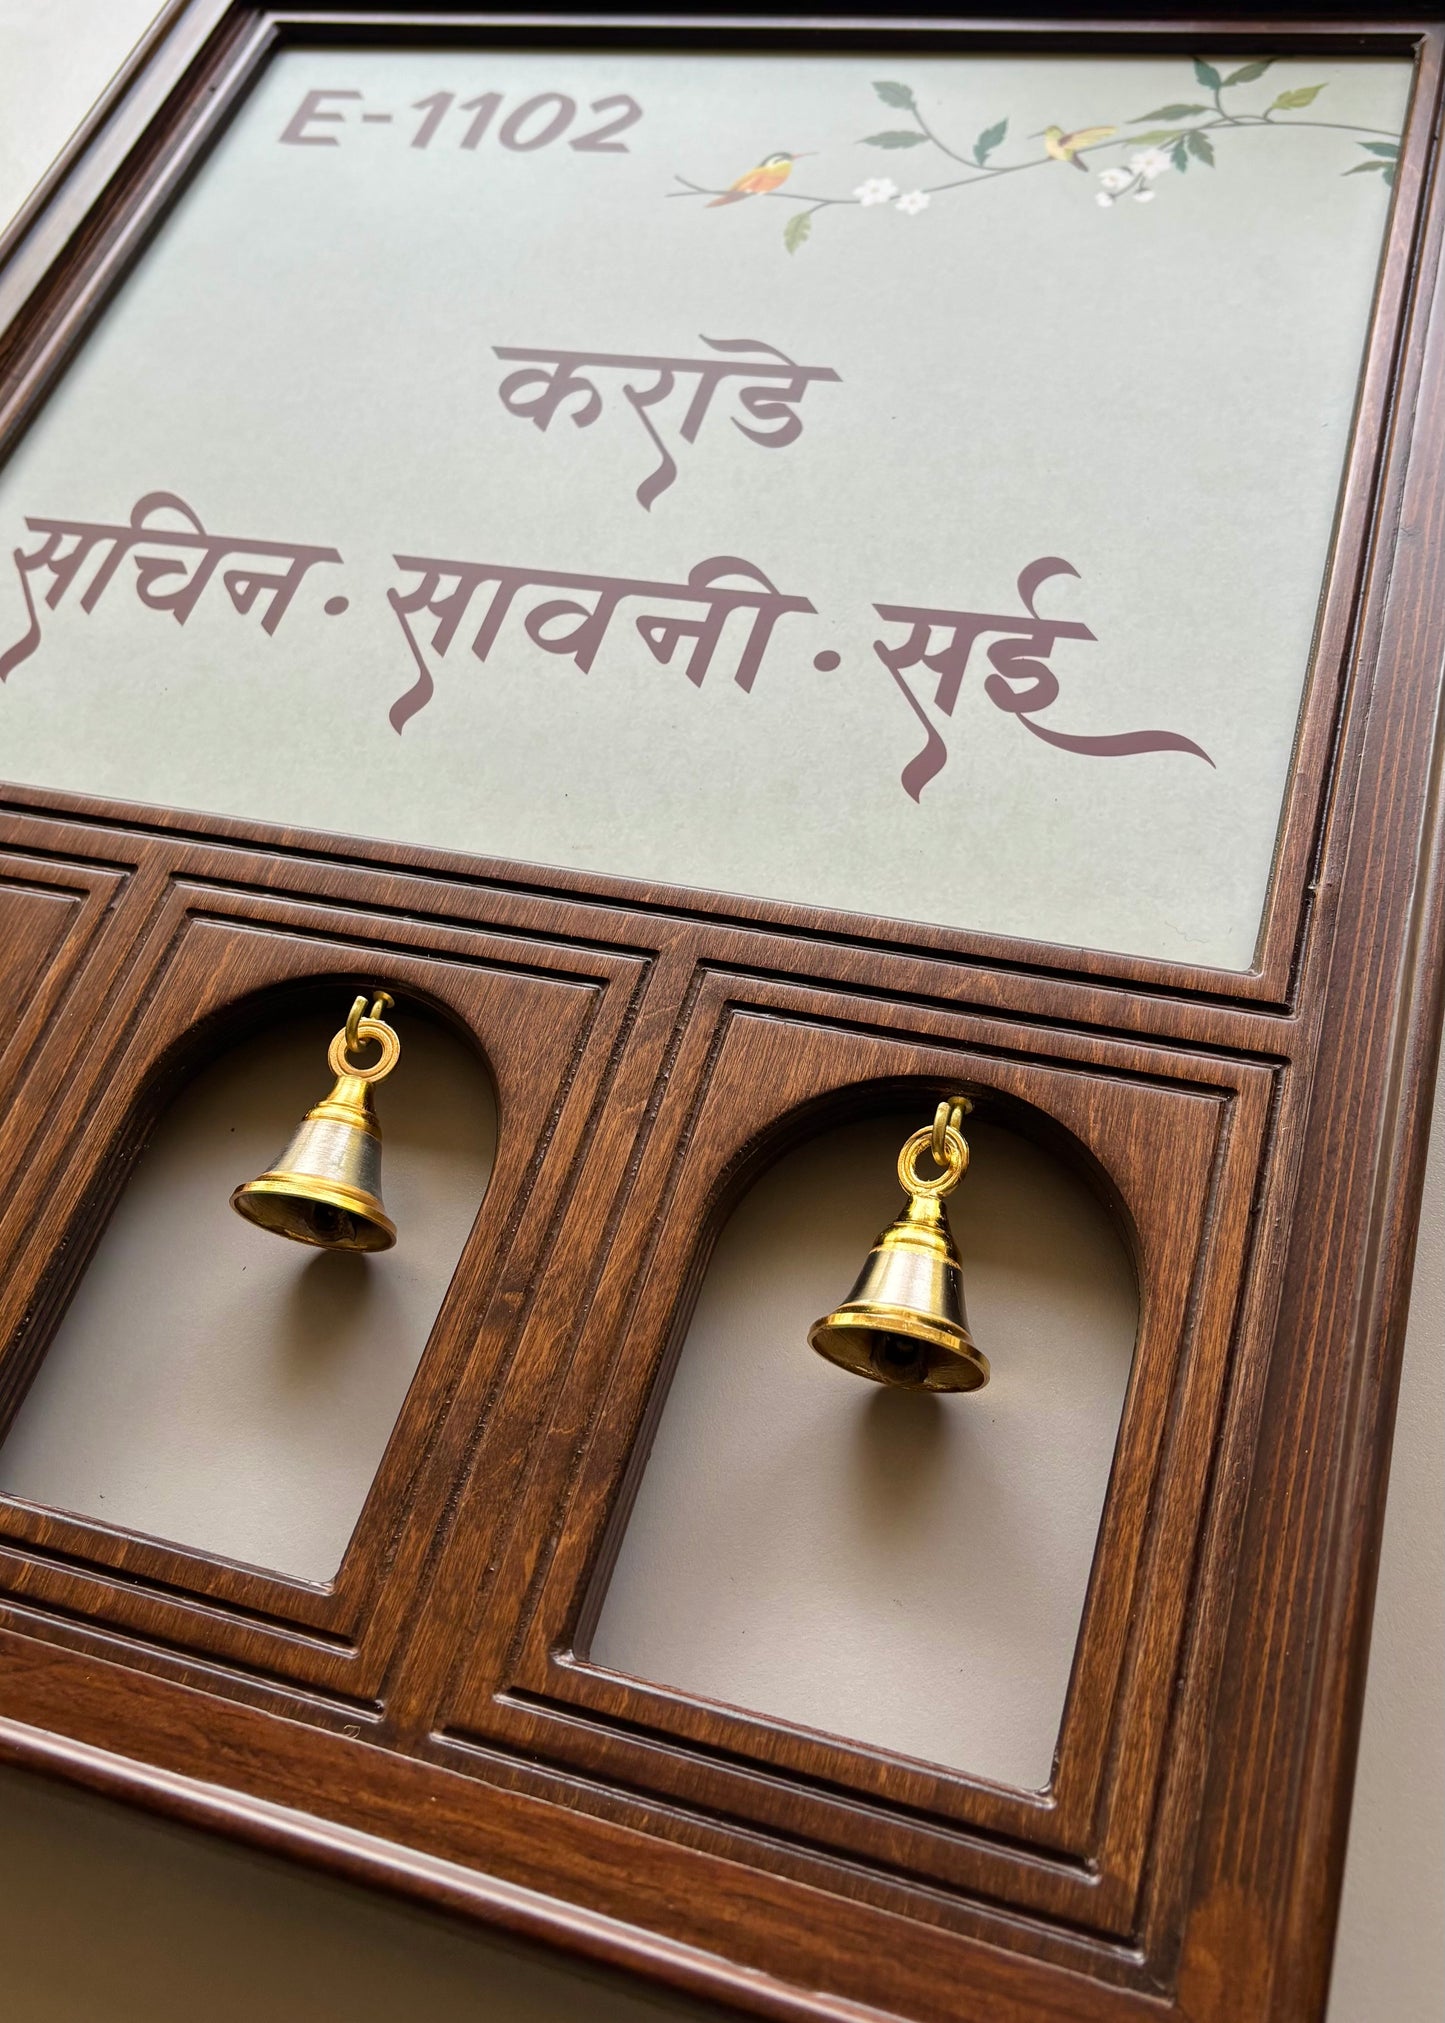 E-1102
कराडे
सचिन · सावनी · सई